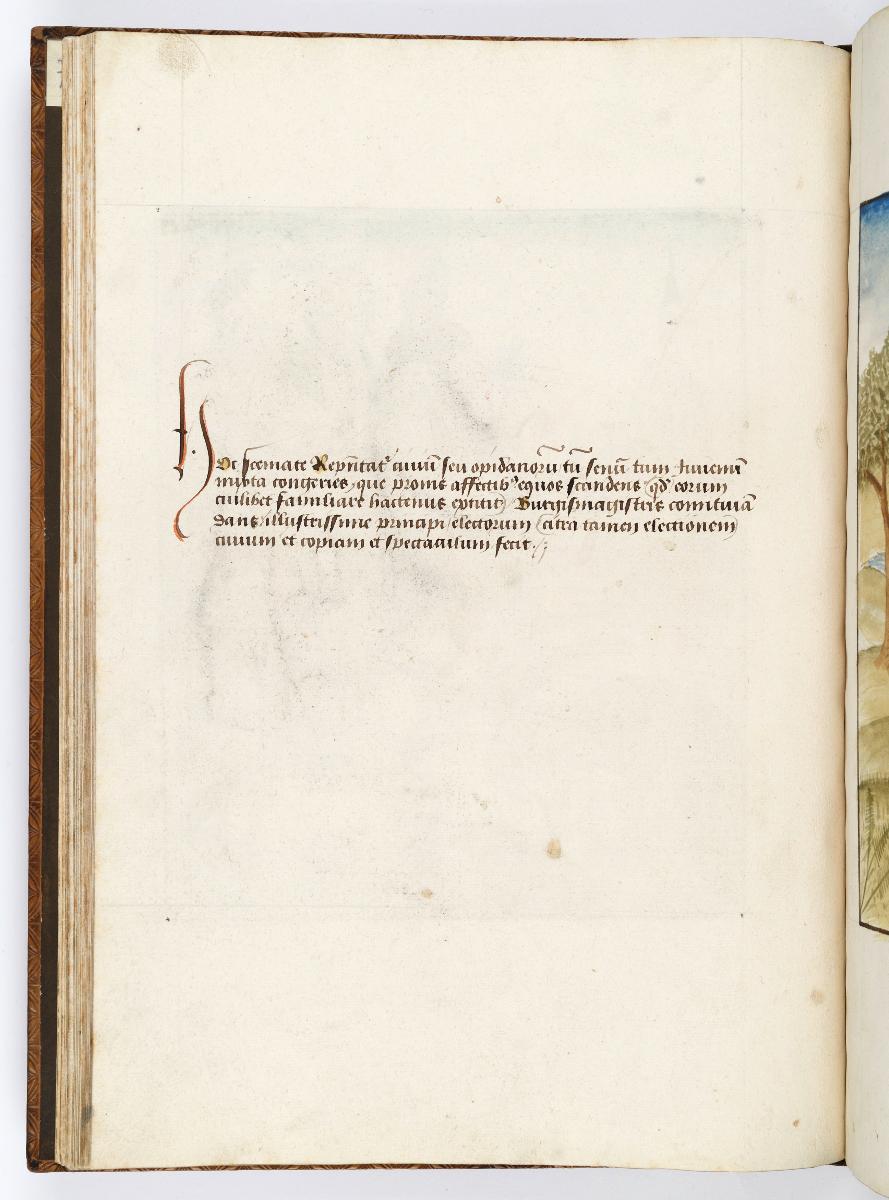 Hoc scemate Repñtat᷒ ciuiũ seu opidanorũ tũ senũ tum Iuuenũ
mixta congeries, que pronis affectib᷒ equos scandens (qđ eorum
cuilibet familiare hactenus extitit) Burgismagistris comitiuã
dans illustrissime principi electorum (citra tamen electionem)
ciuium et copiam et spectaculum fecit ./